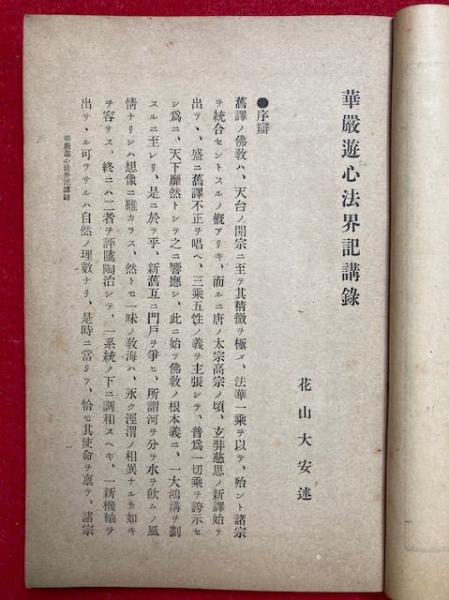 華嚴遊心法界記講錄
花山大安述
●序辯
舊譯ノ佛敎ハ、天台ノ開宗ニ至テ其精微ヲ極メ、法華一乘ヲ以テ、殆ント諸宗
ヲ統合セントスルノ慨アリキ、而ルニ唐ノ太宗高宗ノ頃、玄弉慈恩ノ新譯始テ
出テヽ、盛ニ舊譯不正ヲ唱ヘ、三乘五性ノ義ヲ主張シテ、普爲一切乘ヲ誇示セ
シ爲ニ、天下靡然トシテ之ニ響應シ、此ニ始テ佛敎ノ根本義ニ、一大鴻溝ヲ劃
スルニ至レリ、是ニ於テ乎、新舊互ニ門戶ヲ爭ヒ、所謂河ヲ分テ水ヲ飮ムノ風
情ナリシハ想像ニ難カラス、然トモ一味ノ敎海ハ、永ク涇渭ノ相異ナルカ如キ
ヲ容サス、終ニハ二者ヲ評隲陶治シテ、一系統ノ下ニ調和スヘキ、一新機軸ヲ
出サヽル可ラサルハ自然ノ理數ナリ、是時ニ當リテ、恰モ其使命ヲ稟テ、諸宗
華嚴遊心法界記講錄
一